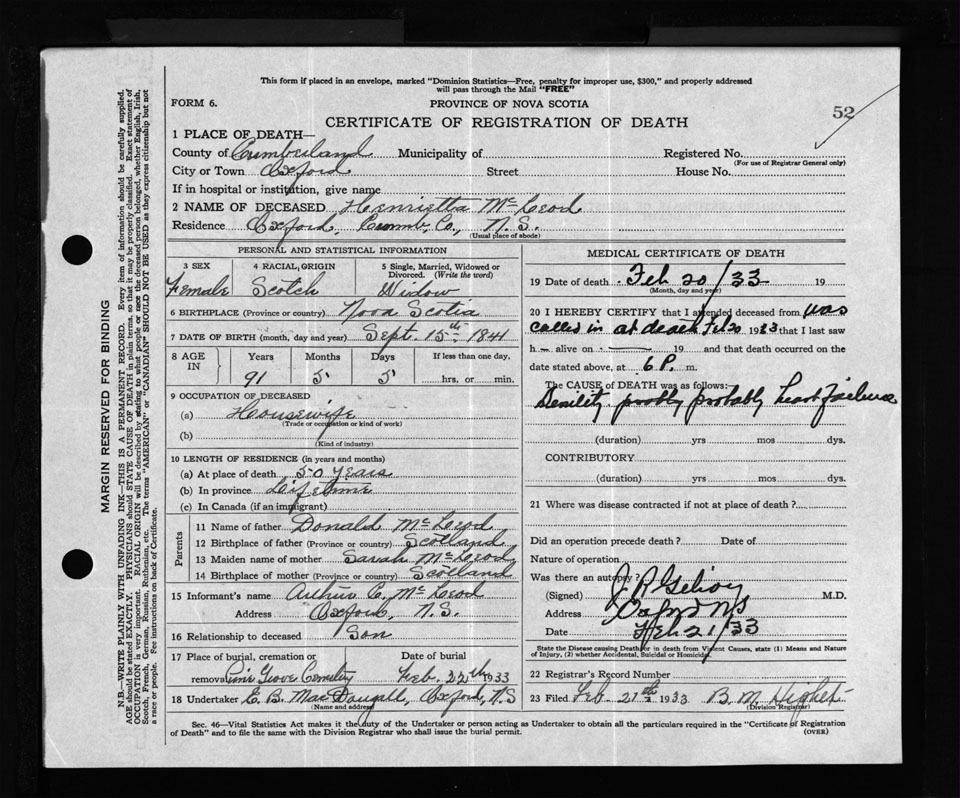 This form if placed in an envelope, marked "Dominion Statistics—Free, penalty for improper use, $300," and properly addressed
will pass through the Mail "FREE"
FORM 6.
PROVINCE OF NOVA SCOTIA
52
CERTIFICATE OF REGISTRATION OF DEATH
1 PLACE OF DEATH—
County of Cumberland Municipality of Registered No.
(For use of Registrar General only)
City or Town Oxford Street House No.
If in hospital or institution, give name
2 NAME OF DECEASED Henrietta McLeod
Residence Oxford, Cumb. Co., N.S.
(Usual place of abode)
PERSONAL AND STATISTICAL INFORMATION
3 SEX 4 RACIAL ORIGIN 5 Single, Married, Widowed or
Divorced. (Write the word)
Female Scotch Widow
6 BIRTHPLACE (Province or country) Nova Scotia
7 DATE OF BIRTH (month, day and year) Sept. 15th 1841
8 AGE IN Years Months Days If less than one day,
91 5 5 hrs. or min.
9 OCCUPATION OF DECEASED
(a) Housewife
(Trade or occupation or kind of work)
(b)
(Kind of industry)
10 LENGTH OF RESIDENCE (in years and months)
(a) At place of death 50 years
(b) In province Lifetime
(c) In Canada (if an immigrant)
Parents
11 Name of father Donald McLeod
12 Birthplace of father (Province or country) Scotland
13 Maiden name of mother Sarah McLeod
14 Birthplace of mother (Province or country) Scotland
15 Informant's name Arthur C. McLeod
Address Oxford, N.S.
16 Relationship to deceased Son
17 Place of burial, cremation or Date of burial
removal Pine Grove Cemetery Feb. 22nd 1933
18 Undertaker E. B. MacDougall, Oxford, N.S
(Name and address)
MEDICAL CERTIFICATE OF DEATH
19 Date of death Feb 20/33 19
(Month, day and year)
20 I HEREBY CERTIFY that I attended deceased from was
called in at death Feb 20 1933 that I last saw
h— alive on 19 and that death occurred on the
date stated above, at 6 P. m.
The CAUSE OF DEATH was as follows:
Senility probably heart failure
(duration) yrs mos dys.
CONTRIBUTORY
(duration) yrs mos dys.
21 Where was disease contracted if not at place of death?
Did an operation precede death? Date of
Nature of operation
Was there an autopsy?
(Signed) M.D.
Address Oxford NS
Date Feb 21/33
State the Disease causing Death, or in death from Violent Causes, state (1) Means and Nature
of Injury, (2) whether Accidental, Suicidal or Homicidal.
22 Registrar's Record Number
23 Filed Feb. 27th 1933 B. M.
(Division Registrar)
Sec. 46—Vital Statistics Act makes it the duty of the Undertaker or person acting as Undertaker to obtain all the particulars required in the "Certificate of Registration
of Death" and to file the same with the Division Registrar who shall issue the burial permit.
(OVER)
MARGIN RESERVED FOR BINDING
N.B.—WRITE PLAINLY WITH UNFADING INK—THIS IS A PERMANENT RECORD. Every item of information should be carefully supplied.
AGE should be stated EXACTLY. PHYSICIANS should STATE CAUSE OF DEATH in plain terms, so that it may be properly classified. Exact statement of
OCCUPATION is very important. RACIAL ORIGIN will be described by stating to what people or race the deceased person belonged, whether English, Irish,
Scotch, French, German, Russian, Ruthenian, etc. The terms "AMERICAN" or "CANADIAN" SHOULD NOT BE USED as they express citizenship but not
a race or people. See instructions on back of Certificate.